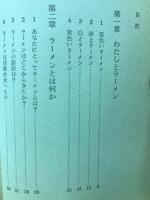 目次
第一章 わたしとラーメン
1 黒色いラーメン
2 赤とラーメン
3 白とラーメン
4 黄色いラーメン
第二章 ラーメンとは何か
1 あなたにとってラーメンとは?
2 ラーメンはどこからきたか?
3 ラーメンの語源は?
4 ラーメンは国籍的食べもの